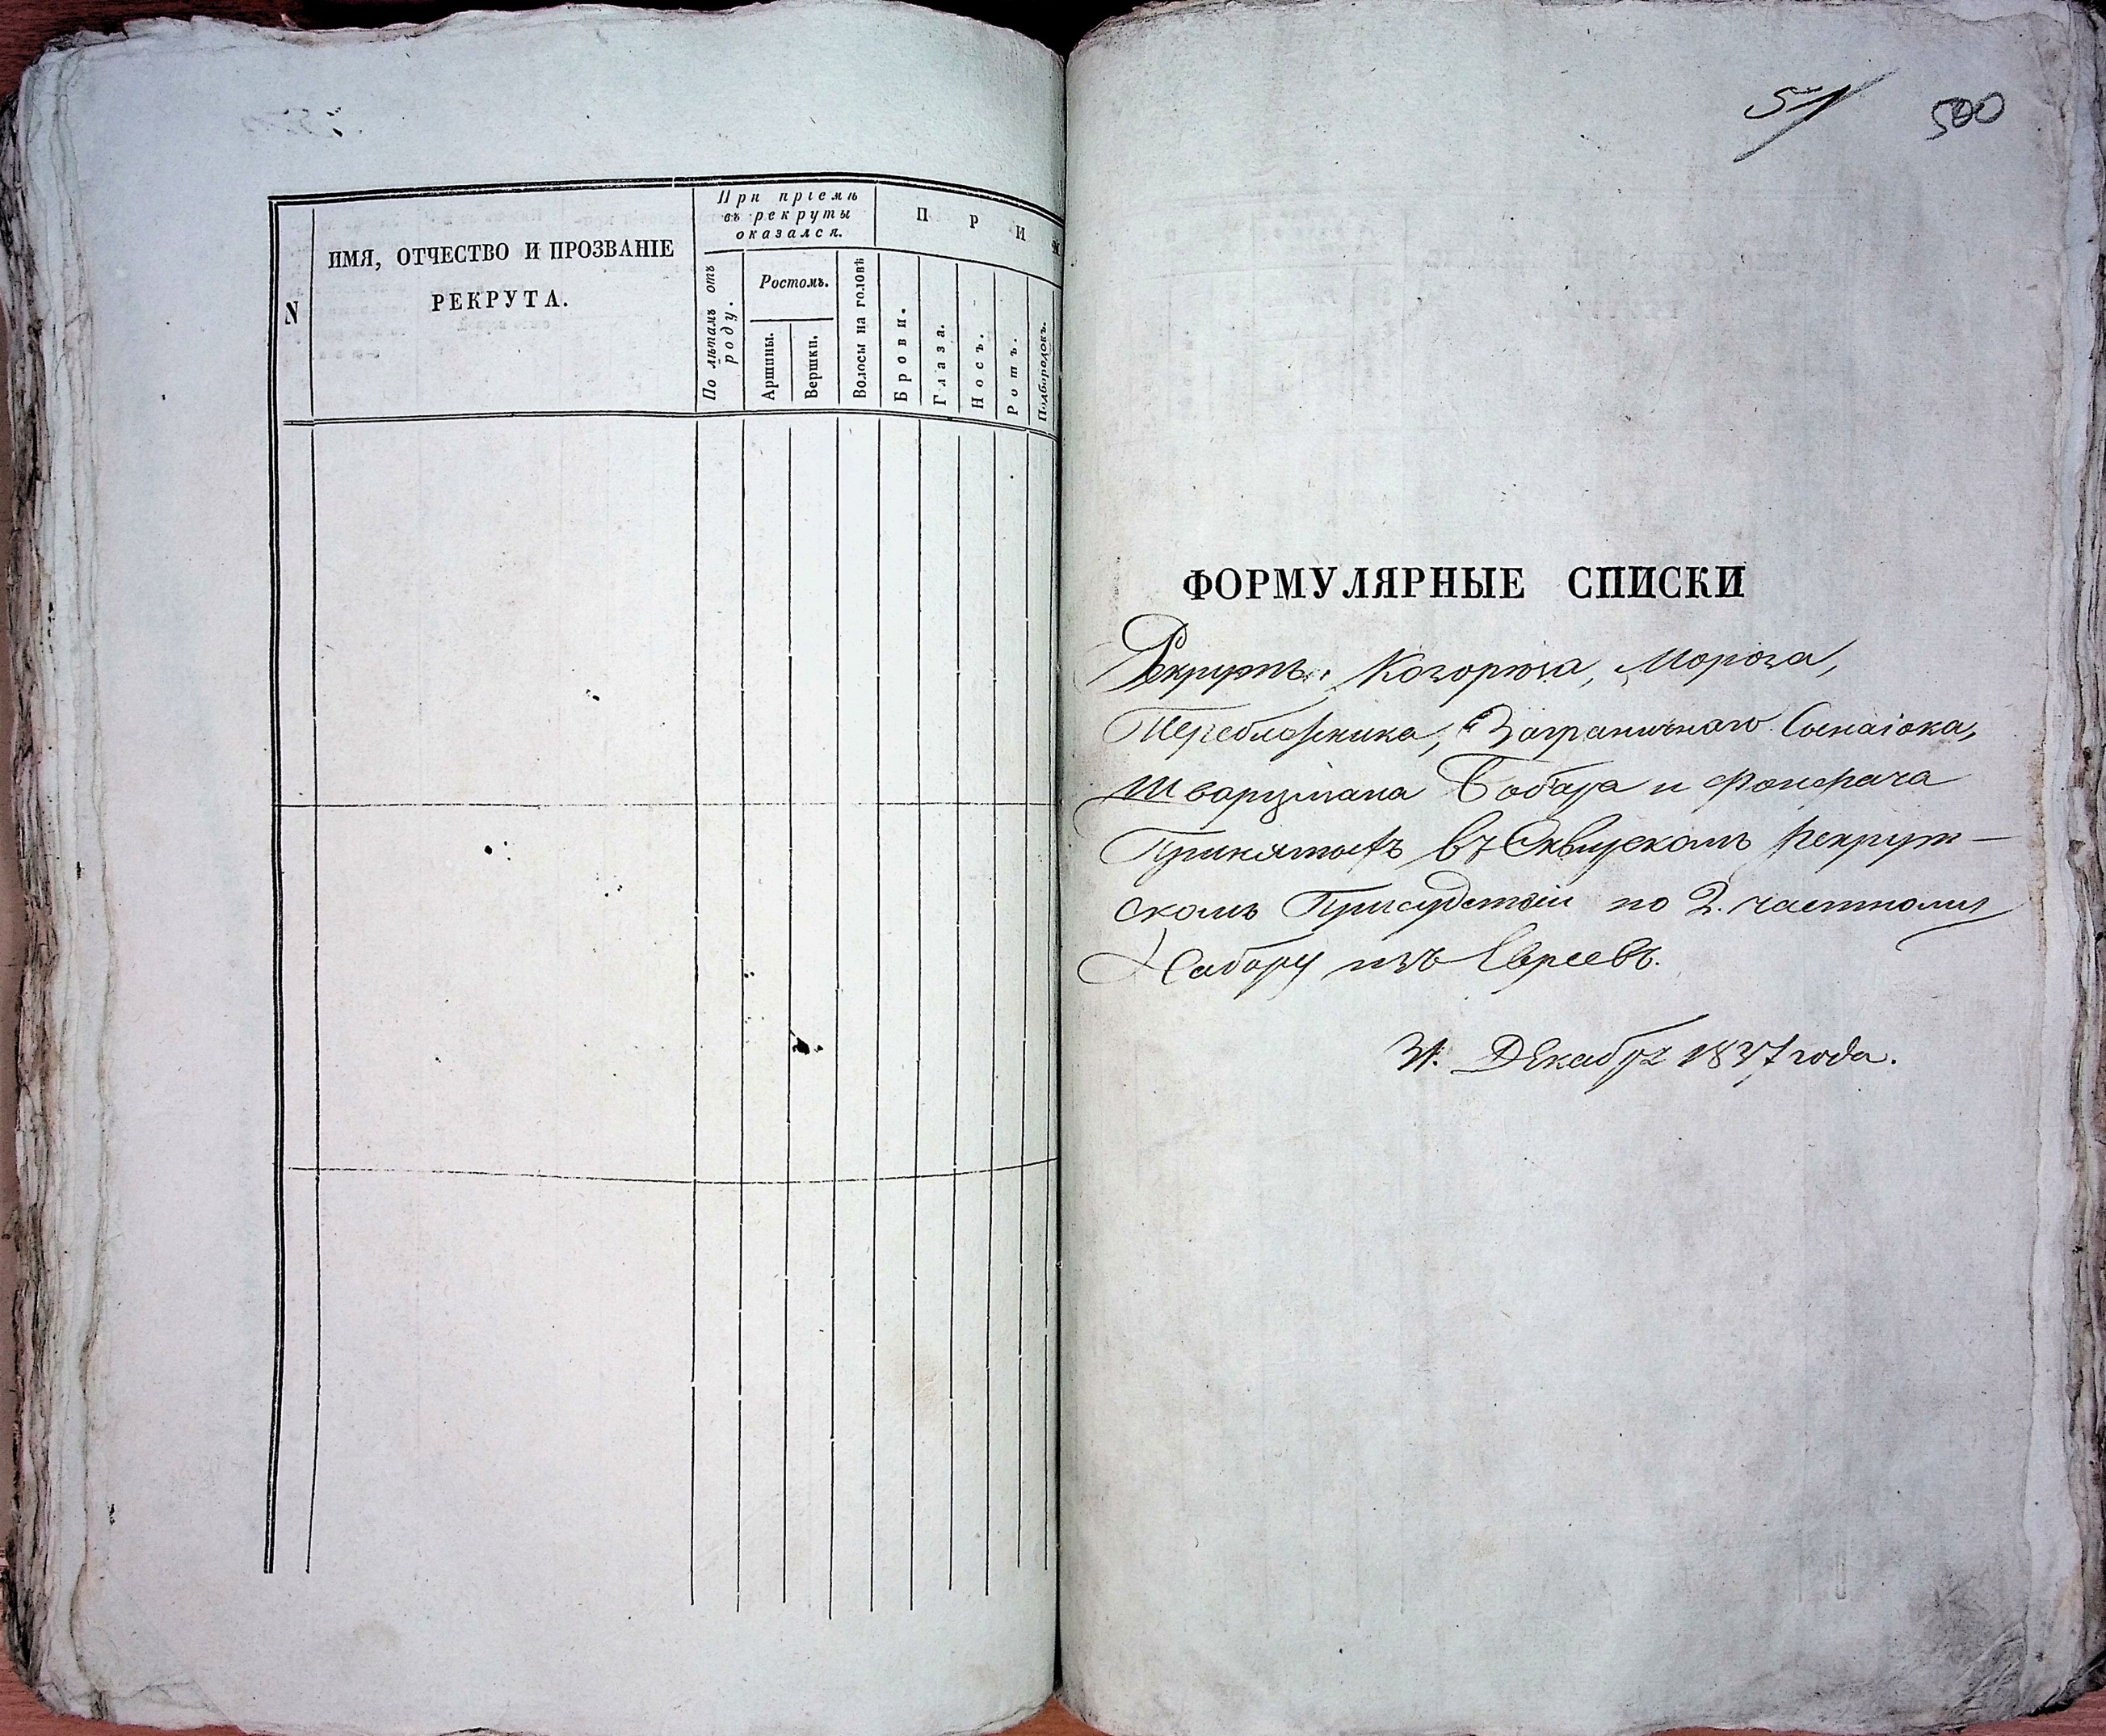 N
ИМЯ, ОТЧЕСТВО И ПРОЗВАНІЕ
РЕКРУТА.
При пріемѣ
въ рекруты
оказался.
По лѣтамъ отъ
роду.
Ростомъ.
Аршины.
Вершки.
Волосы на головѣ
П Р И М
Брови.
Глаза.
Носъ.
Ротъ.
Подбородокъ.
500
ФОРМУЛЯРНЫЕ СПИСКИ
Рекрутъ: Когорюка, Мороза,
Заграничнаго
Шварцмана Бобра и
Принятыхъ въ Сквирскомъ Рекрут-
скомъ Присудствіи по 2. частному
Набору изъ Евреевъ.
31. Декабря 1837 года.